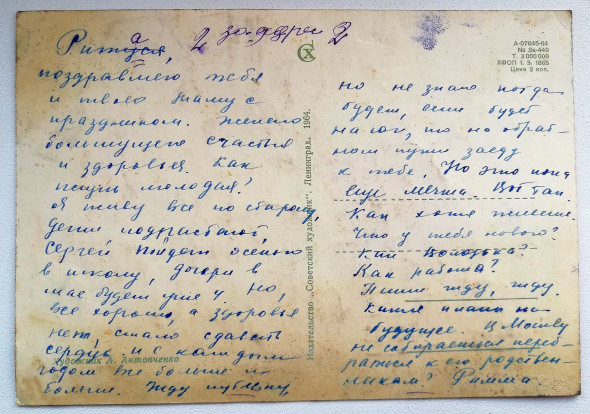 Риту​ся, а 2 за адрес 2
поздравляю тебя
и твою маму с
праздником. Желаю
большущего счастья
и здоровья. Как
жизнь молодая?
Я живу все по старому,
дети подрастают,
Сергей пойдет осенью
в школу, дочери в
мае будет уже 4. Но,
все хорошо, а здоровья
нет, стало сдавать
сердце и с каждым
годом все больше и
больше. Жду
Художник А. Антонченко
Издательство „Советский художник". Ленинград. 1964.
СХ
А-07645-64
№ 3а-440
Т. 3 000 000
ЛФОП 1. З. 1965
Цена 3 коп.
но не знаю когда
будет, если будет
на юг, то на обрат-
ном пути заеду
к тебе. Но это пока
еще мечта. Вот так.
Как твоя
Что у тебя нового?
Как Володька?
Как работа?
Пиши жду, жду.
Какие планы на
будущее. В Москву
не собираешься переб-
раться к его родствен-
никам? Римма